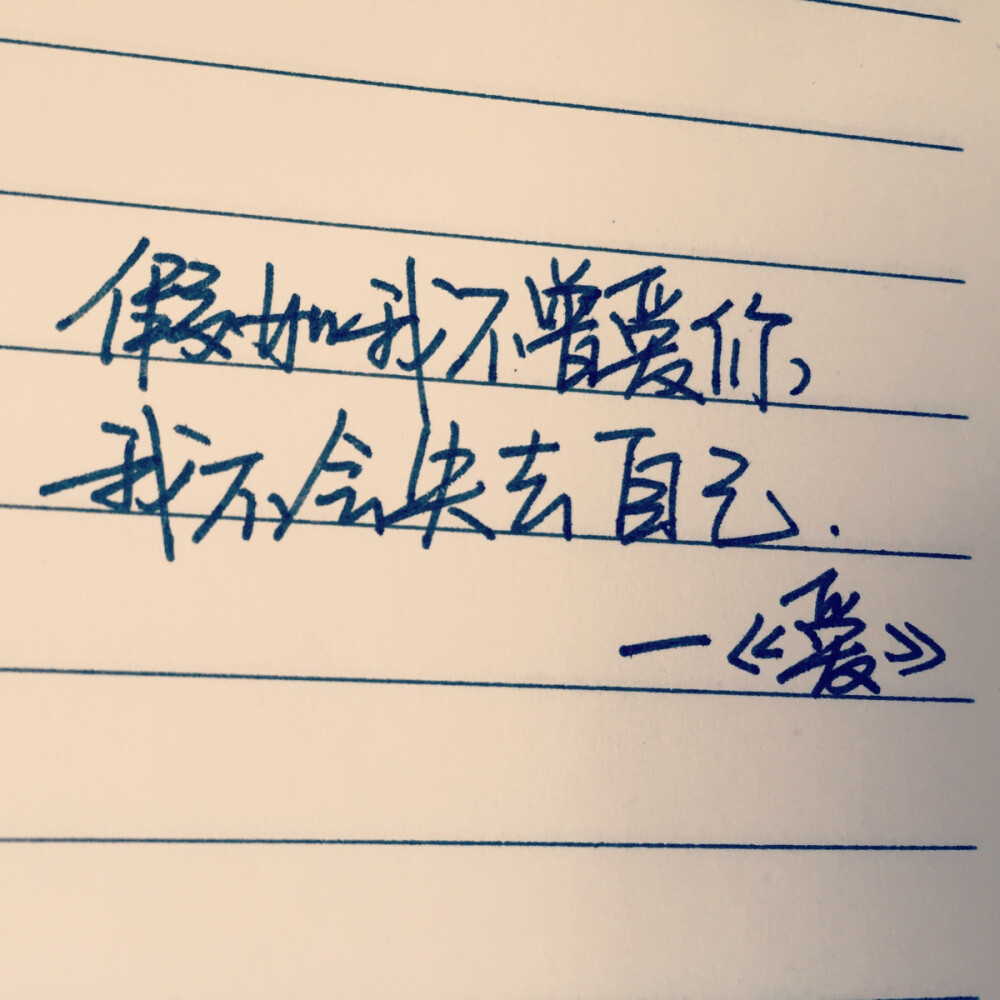 假如我不曾爱你,
我不会失去自己.
—《爱》